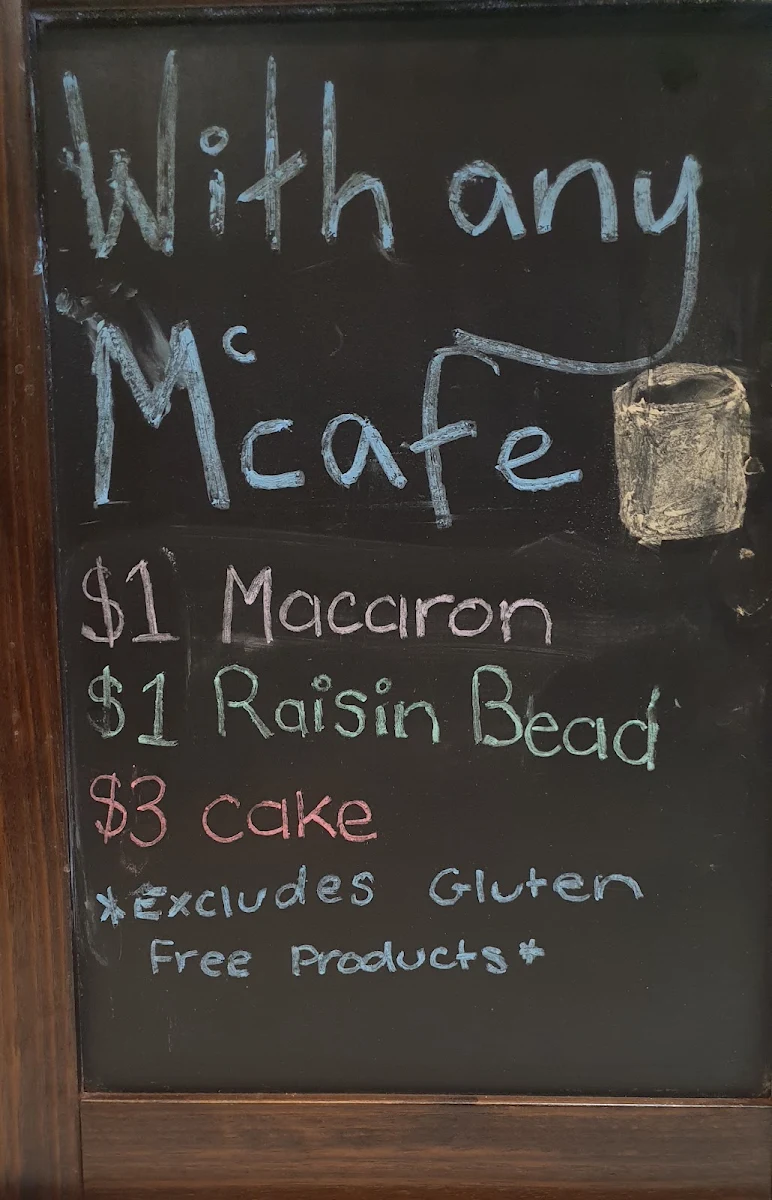 With any
Mccafe
$1 Macaron
$1 Raisin Bead
$3 cake
*Excludes Gluten
Free Products*